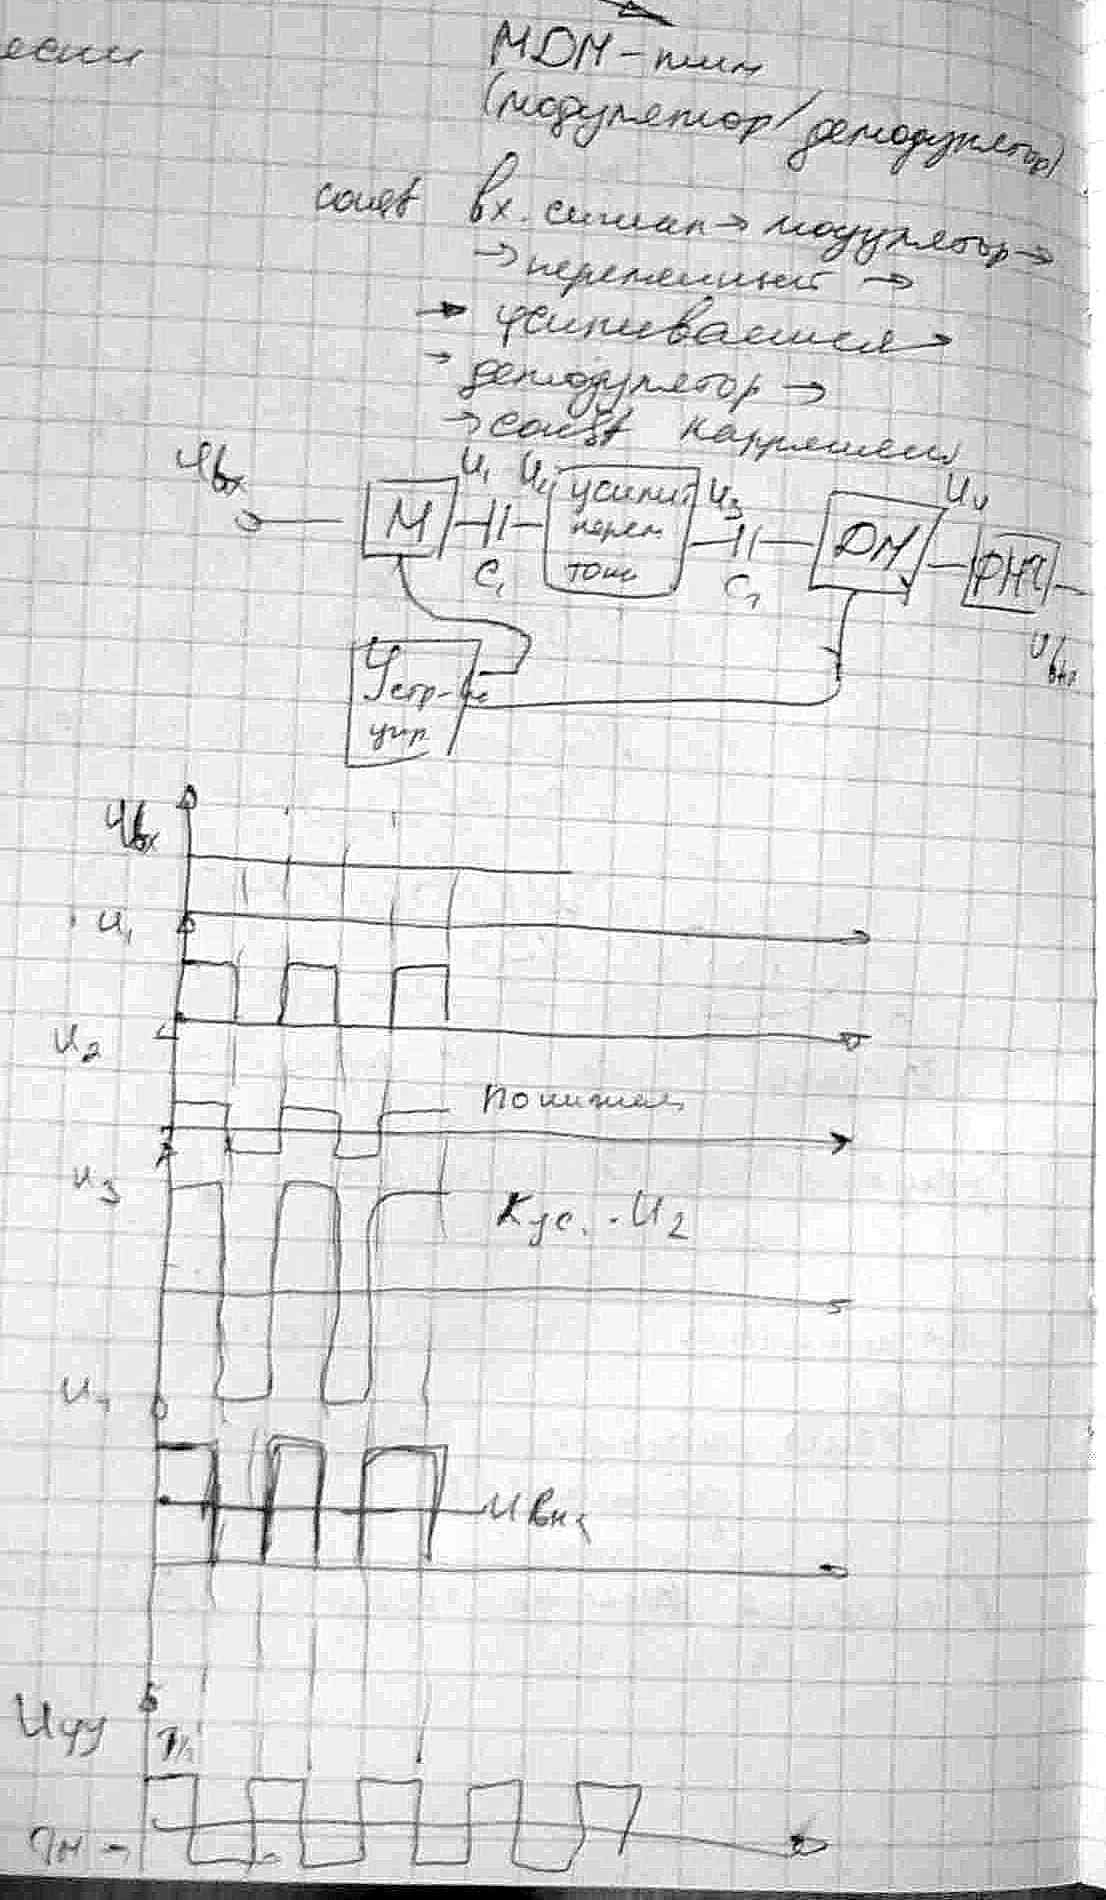 МДМ-тип
(модулятор/демодулятор)
const вх. сигнал → модулятор →
→ переменный →
→ усиливается →
→ демодулятор →
→ const напряжен
Uвх
М
U1
C1
U2
усилит
перем
тока
U3
C1
ДМ
U4
ФНЧ
Uвых
Устр-во
упр
Uвх
U1
U2
U3
Kус. · U2
U4
Uвых
Uуу